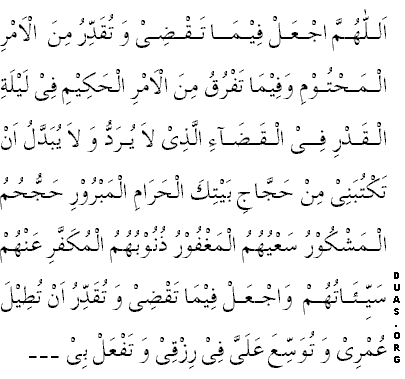 اَللّٰهُمَّ اجْعَلْ فِيْمَا تَقْضِىْ وَ تُقَدِّرُ مِنَ الْاَمْرِ
الْمَحْتُوْمِ وَفِيْمَا تَفْرُقُ مِنَ الْاَمْرِ الْحَكِيْمِ فِىْ لَيْلَةِ
الْقَدْرِ فِىْ الْقَضَآءِ الَّذِىْ لاَ يُرَدُّ وَ لاَ يُبَدَّلُ اَنْ
تَكْتُبَنِىْ مِنْ حَجَّاجِ بَيْتِكَ الْحَرَامِ الْمَبْرُوْرِ حَجُّحُمُ
الْمَشْكُوْرُ سَعْيُهُمُ الْمَغْفُوْرُ ذُنُوْبُهُمُ الْمُكَفَّرِ عَنْهُمْ
سَيِّئَاتُهُمْ وَاجْعَلْ فِيْمَا تَقْضِىْ وَ تُقَدِّرُ اَنْ تُطِيْلَ
عُمْرِىْ وَ تُوَسِّعَ عَلَىَّ فِىْ رِزْقِىْ وَ تَفْعَلْ بِىْ ---
DUAS.ORG